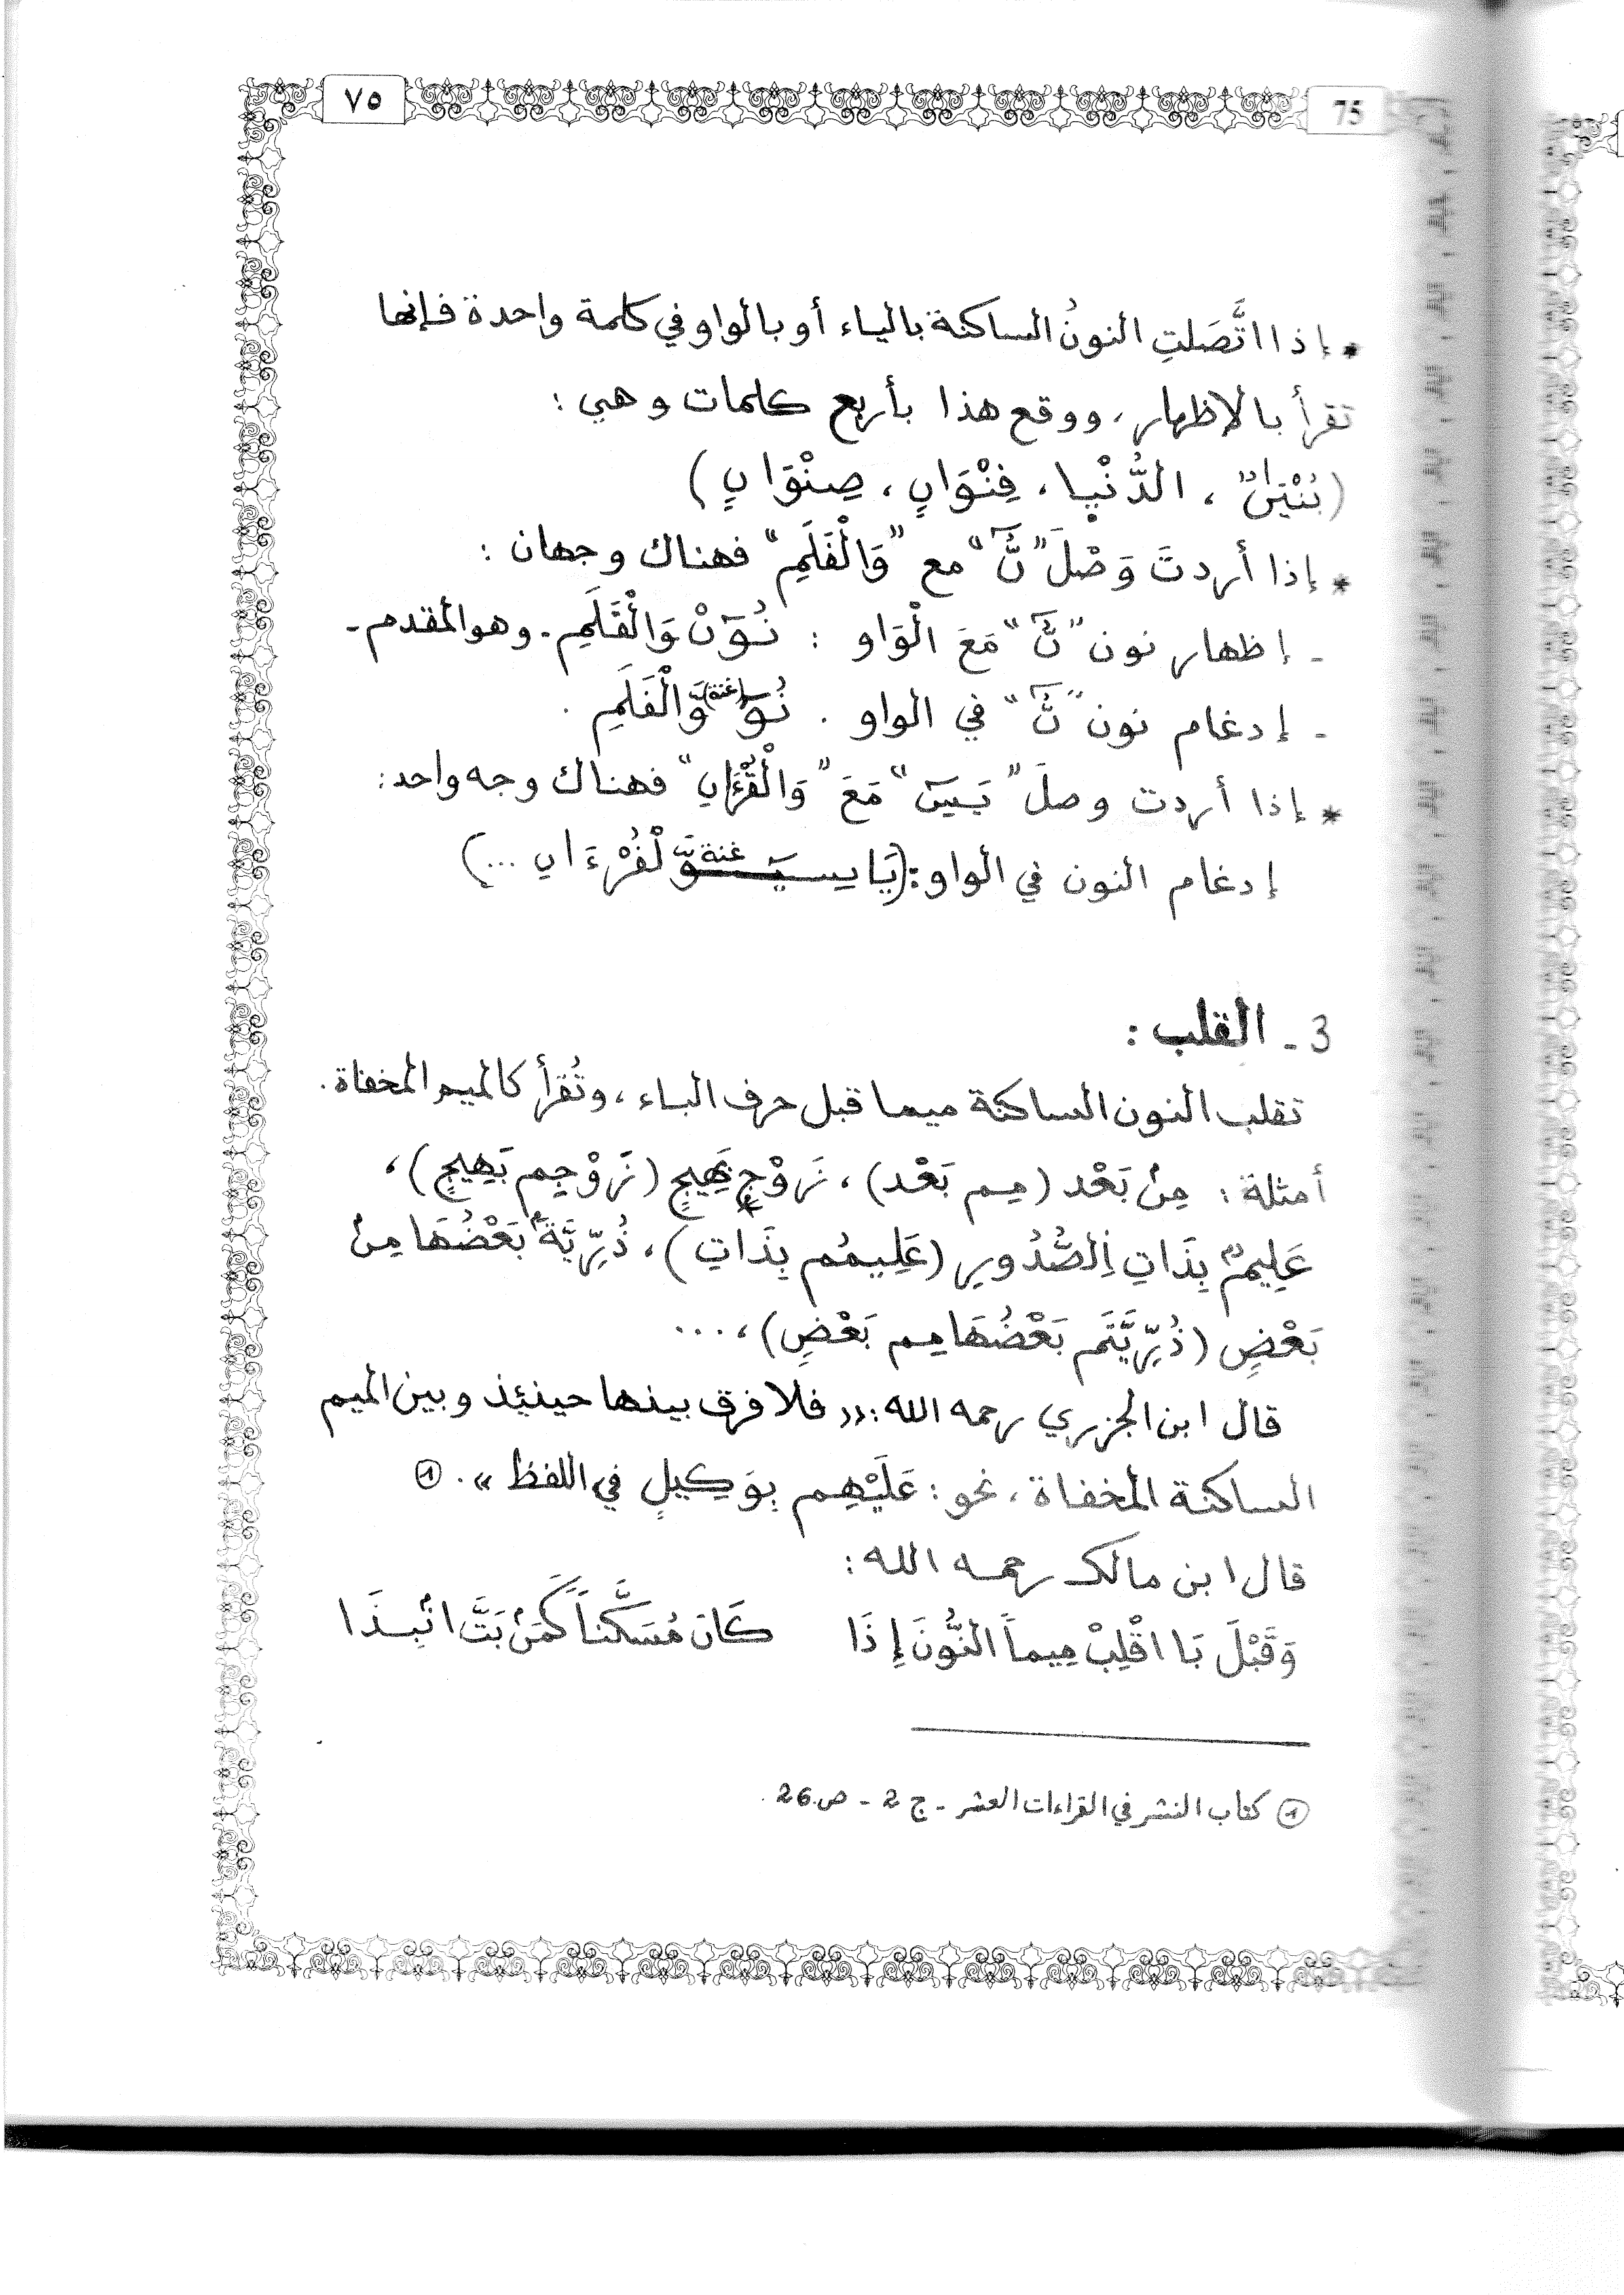 ٧٥
75
* إذا اتَّصَلتِ النونُ الساكنة بالياء أو بالواو في كلمة واحدة فإنها
تقرأ بالإظهار، ووقع هذا بأربع كلمات وهي :
(بُنْيَٰنٌ ، الدُّنْيا ، قِنْوَانٍ ، صِنْوَانٍ)
* إذا أردتَ وَصْلَ "نَّ" مع "وَالْقَلَمِ" فهناك وجهان :
- إظهار نون "نَّ" مَعَ الْوَاو : نُوٓنْ وَالْقَلَمِ - وهو المقدم -
- إدغام نون "نَّ" في الواو . نُوٓ (غنة) وَّالْقَلَمِ .
* إذا أردت وصلَ "يَسٓ" مَعَ "وَالْقُرْءَانِ" فهناك وجه واحد :
إدغام النون في الواو : (يَا سِيٓـ غنة ـوَّلْقُرْءَانِ ...)
3 - القلب :
تقلب النون الساكنة ميما قبل حرف الباء ، وتُقرأ كالميم المخفاة .
أمثلة : مِنۢ بَعْد (مِم بَعْد) ، زَوْجٍۢ بَهِيجٍ (زَوْجِم بَهِيجٍ) ،
عَلِيمٌۢ بِذَاتِ اِلصُّدُورِ (عَلِيمُم بِذَاتِ) ، ذُرِّيَّةَۢ بَعْضُهَا مِنۢ
بَعْضٍ (ذُرِّيَّتَم بَعْضُهَا مِم بَعْضٍ) ، ...
قال ابن الجزري رحمه الله : «فلا فرق بينها حينئذ وبين الميم
الساكنة المخفاة ، نحو : عَلَيْهِم بِوَكِيلٍ في اللفظ» . ①
قال ابن مالك رحمه الله :
وَقَبْلَ بَا اقْلِبْ مِيماً النُّونَ إِذَا كَانَ مُسَكَّناً كَمَنۢ بَتَّ انۢبِذَا
① كتاب النشر في القراءات العشر - ج 2 - ص 26 .